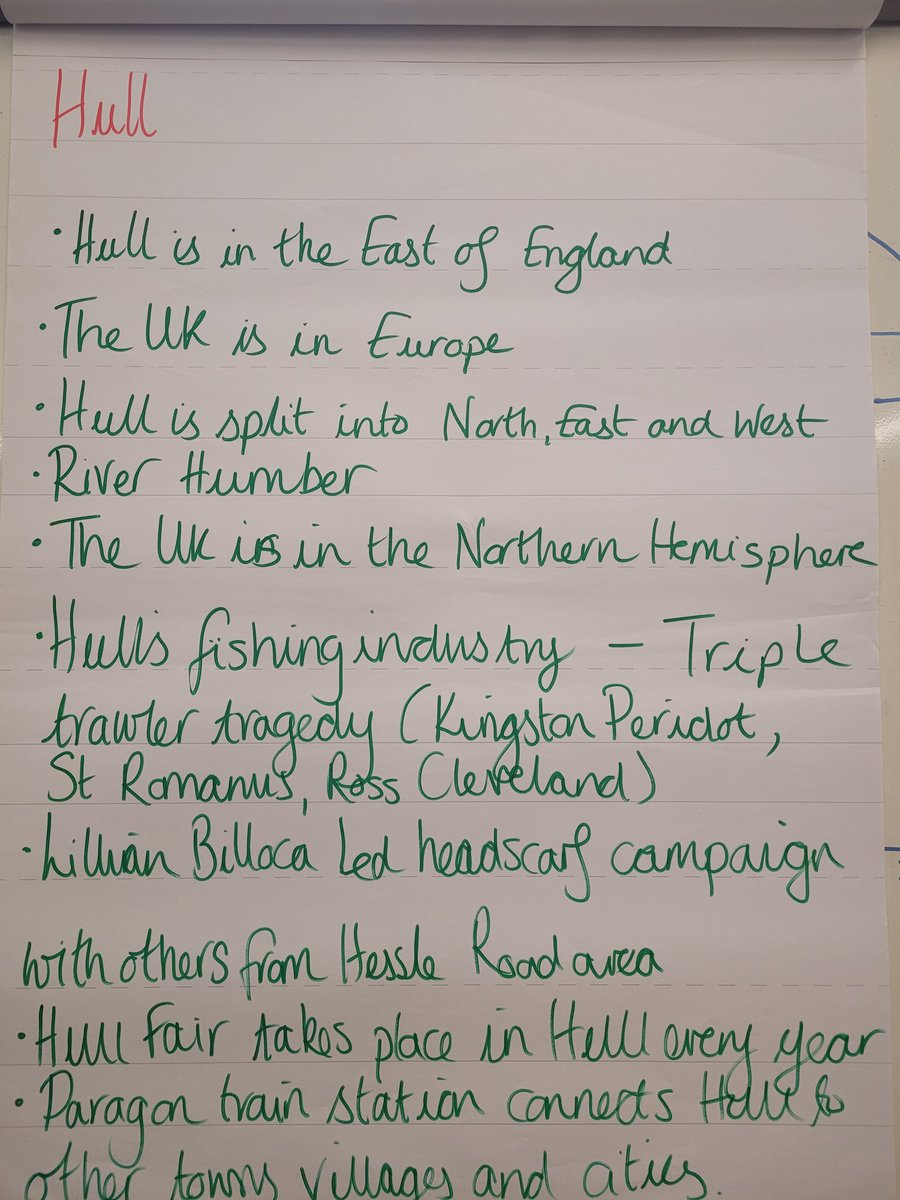 Hull
• Hull is in the East of England
• The UK is in Europe
• Hull is split into North, East and West
• River Humber
• The UK is in the Northern Hemisphere
• Hull's fishing industry – Triple
trawler tragedy (Kingston Peridot,
St Romanus, Ross Cleveland)
• Lillian Billoca Led headscarf campaign
with others from Hessle Road area
• Hull Fair takes place in Hull every year
• Paragon train station connects Hull to
other towns villages and cities.